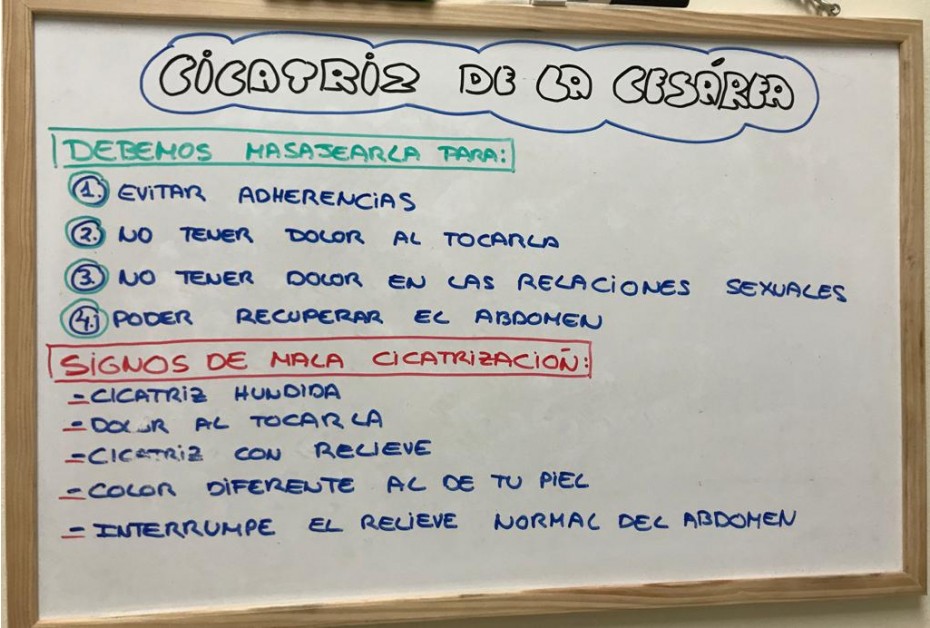 CICATRIZ DE LA CESÁREA
DEBEMOS MASAJEARLA PARA:
1. EVITAR ADHERENCIAS
2. NO TENER DOLOR AL TOCARLA
3. NO TENER DOLOR EN LAS RELACIONES SEXUALES
4. PODER RECUPERAR EL ABDOMEN
SIGNOS DE MALA CICATRIZACIÓN:
- CICATRIZ HUNDIDA
- DOLOR AL TOCARLA
- CICATRIZ CON RELIEVE
- COLOR DIFERENTE AL DE TU PIEL
- INTERRUMPE EL RELIEVE NORMAL DEL ABDOMEN